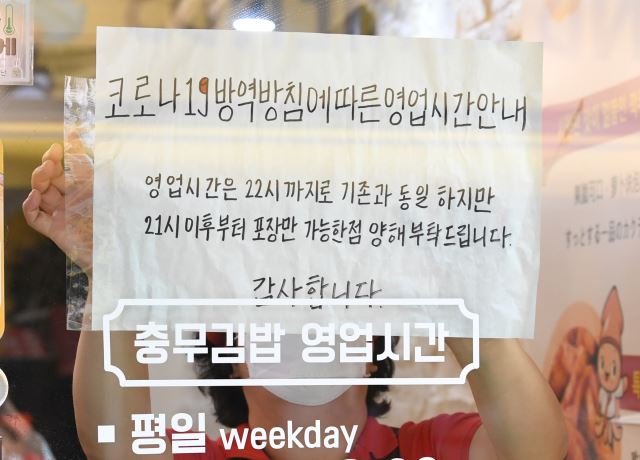 코로나19방역방침에따른영업시간안내
영업시간은 22시까지로 기존과 동일 하지만
21시이후부터 포장만 가능한점 양해부탁드립니다.
감사합니다.
충무김밥 영업시간
■ 평일 weekday